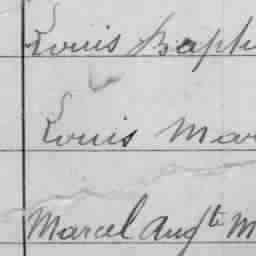 Louis Bapti
Louis Mar
Marcel Augte M